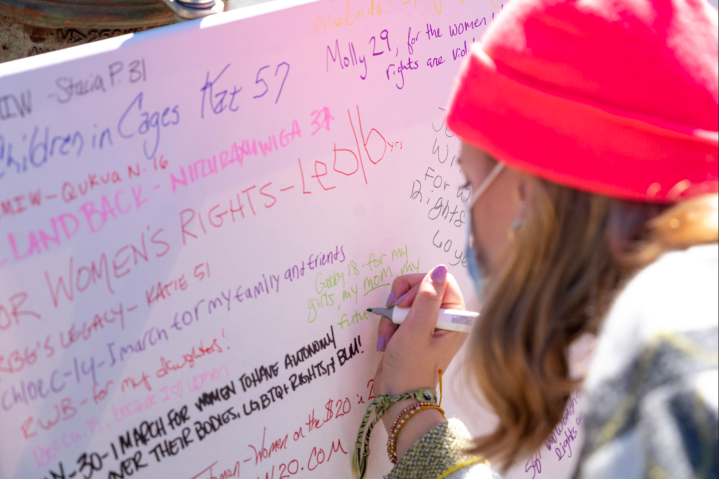 Melinda
Molly 29, for the women
rights are
MIW - Stacia P. 31
Children in Cages Kat 57
MIW - QUKUA N. 16
LANDBACK - NITZURAXUWIGA 37
OR WOMEN'S RIGHTS - Leblb yrs
For
Rights
60 ye
RBG'S LEGACY - KATIE 51
Gabby 18 - for my
girls, my mom, my
futu
CHLOE C - 14 - I march for my family and friends
RWB - for my daughters!
Becca B, because I ♡ women
N - 30 - I MARCH FOR WOMEN TO HAVE AUTONOMY
OVER THEIR BODIES, LGBTQ+ RIGHTS, + BLM!
Women on the $20 in 2
N20.COM